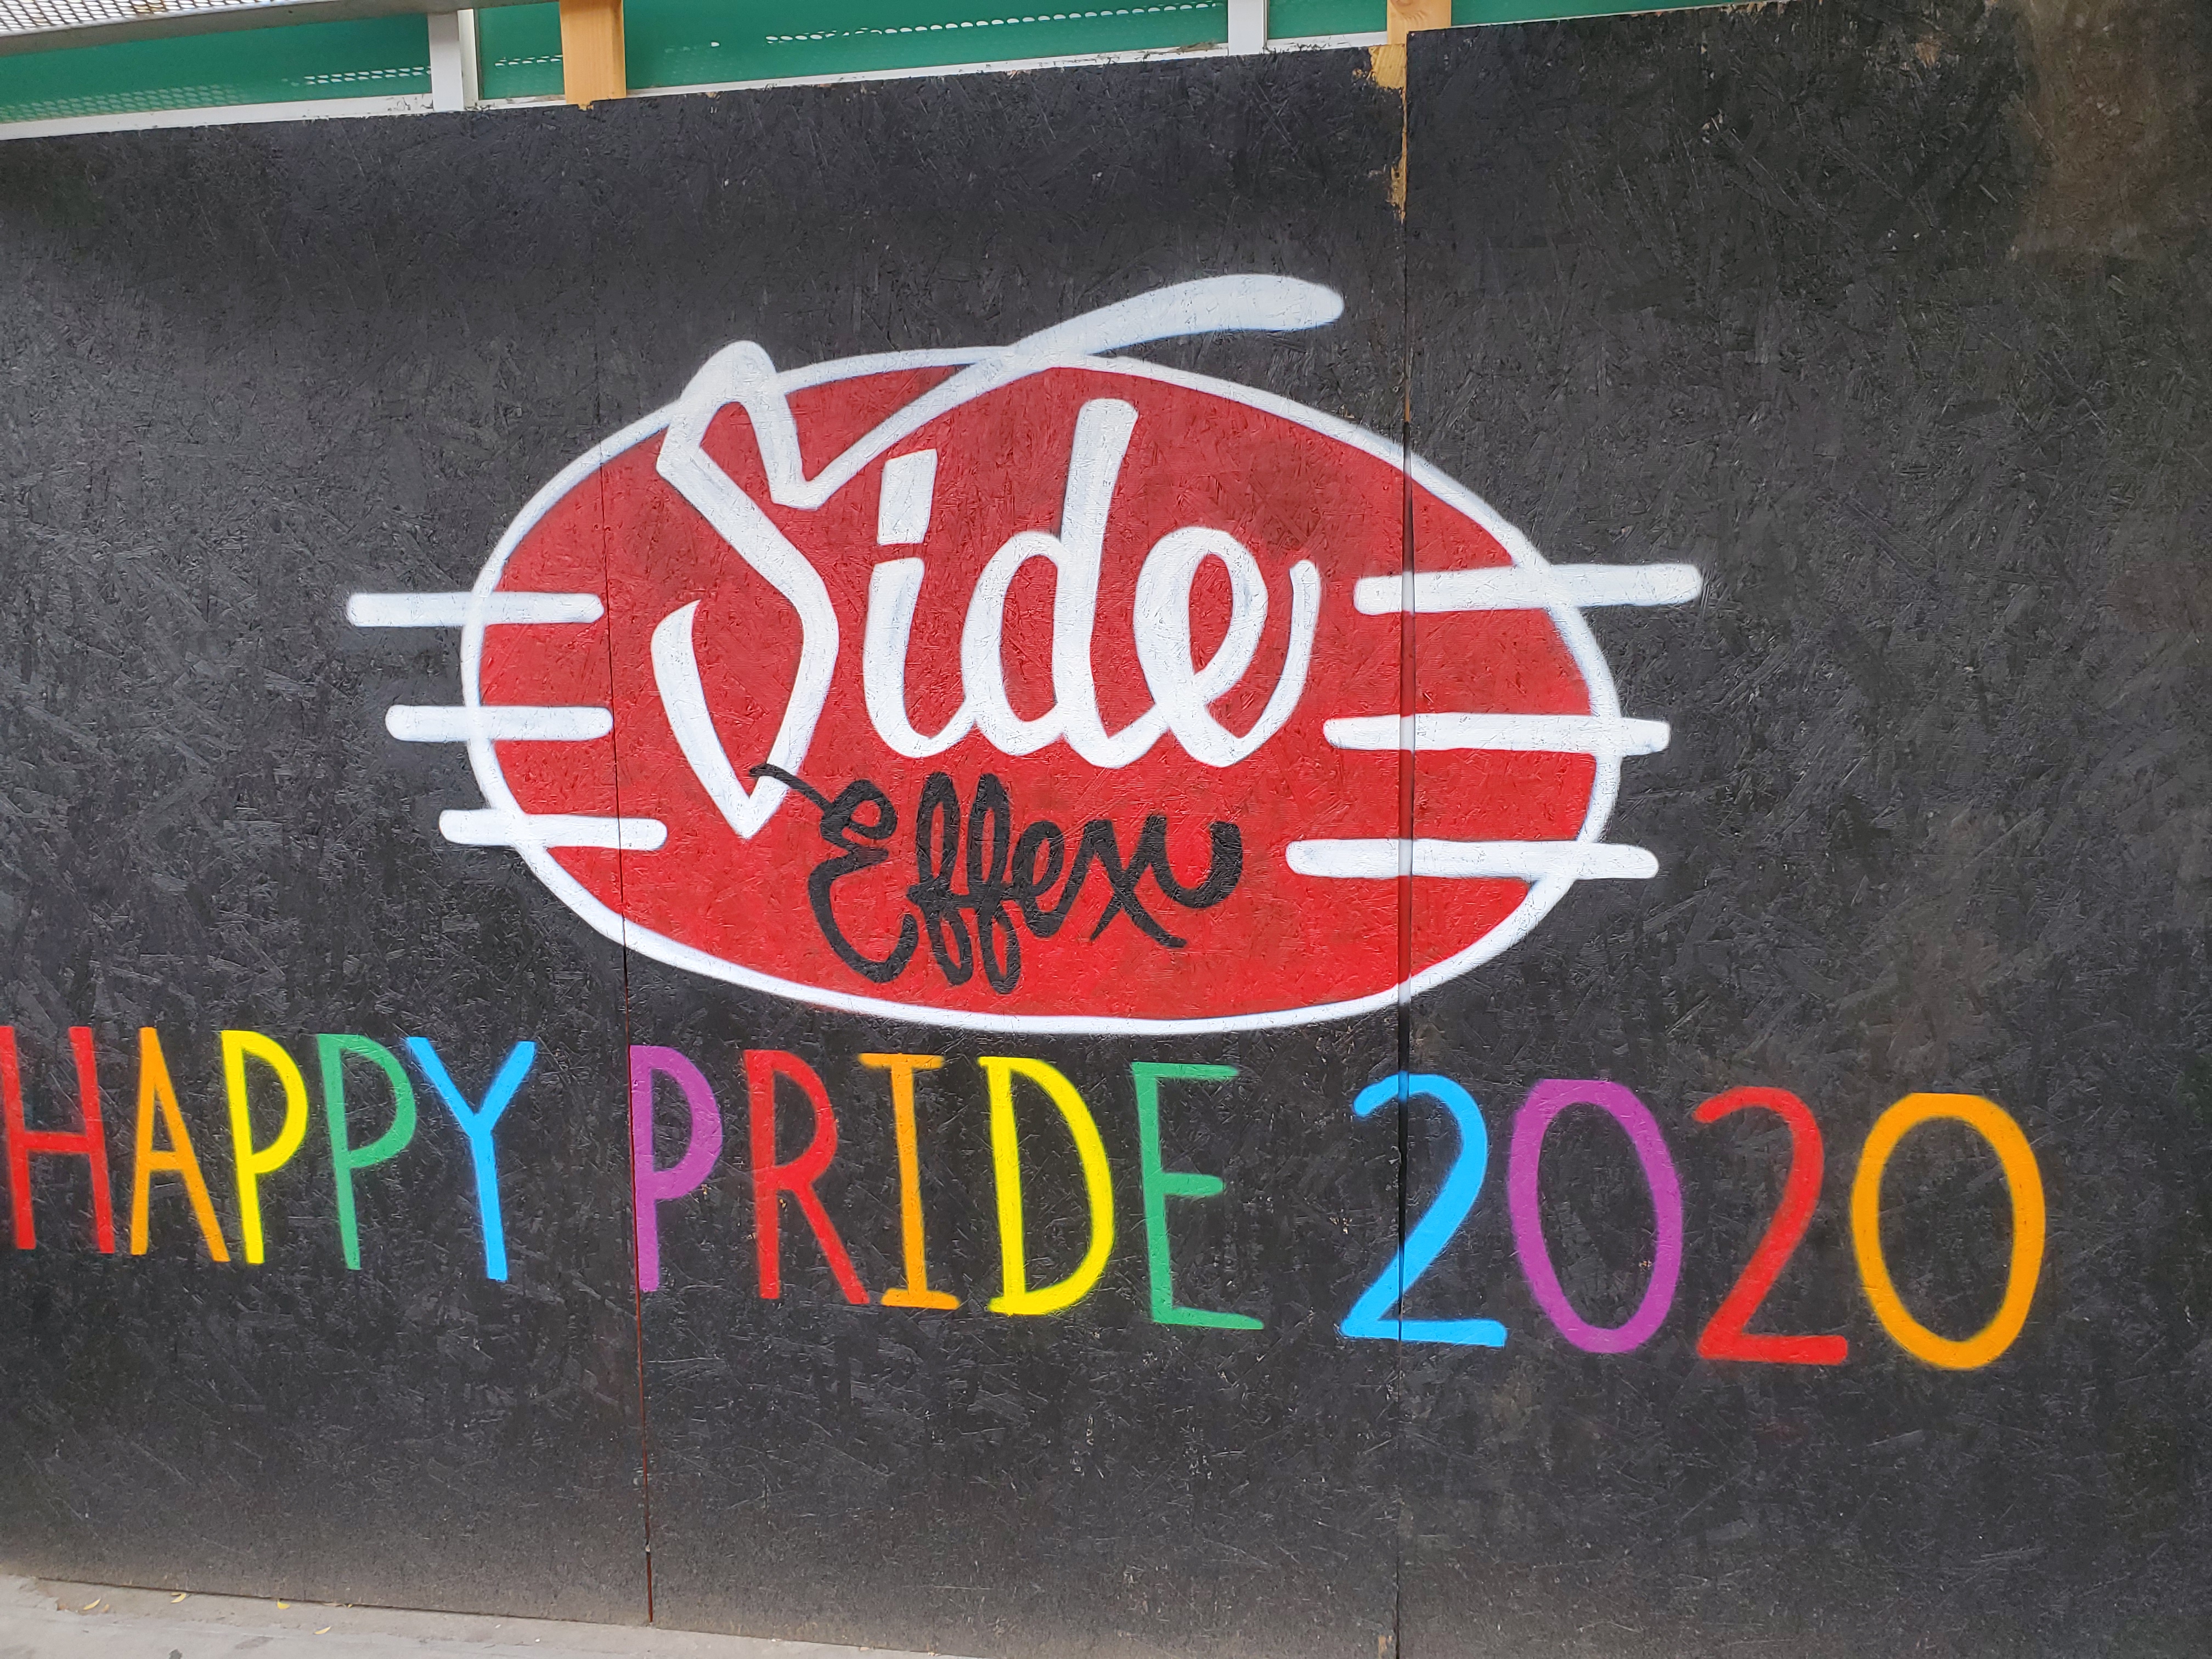 Side
Effex
HAPPY PRIDE 2020